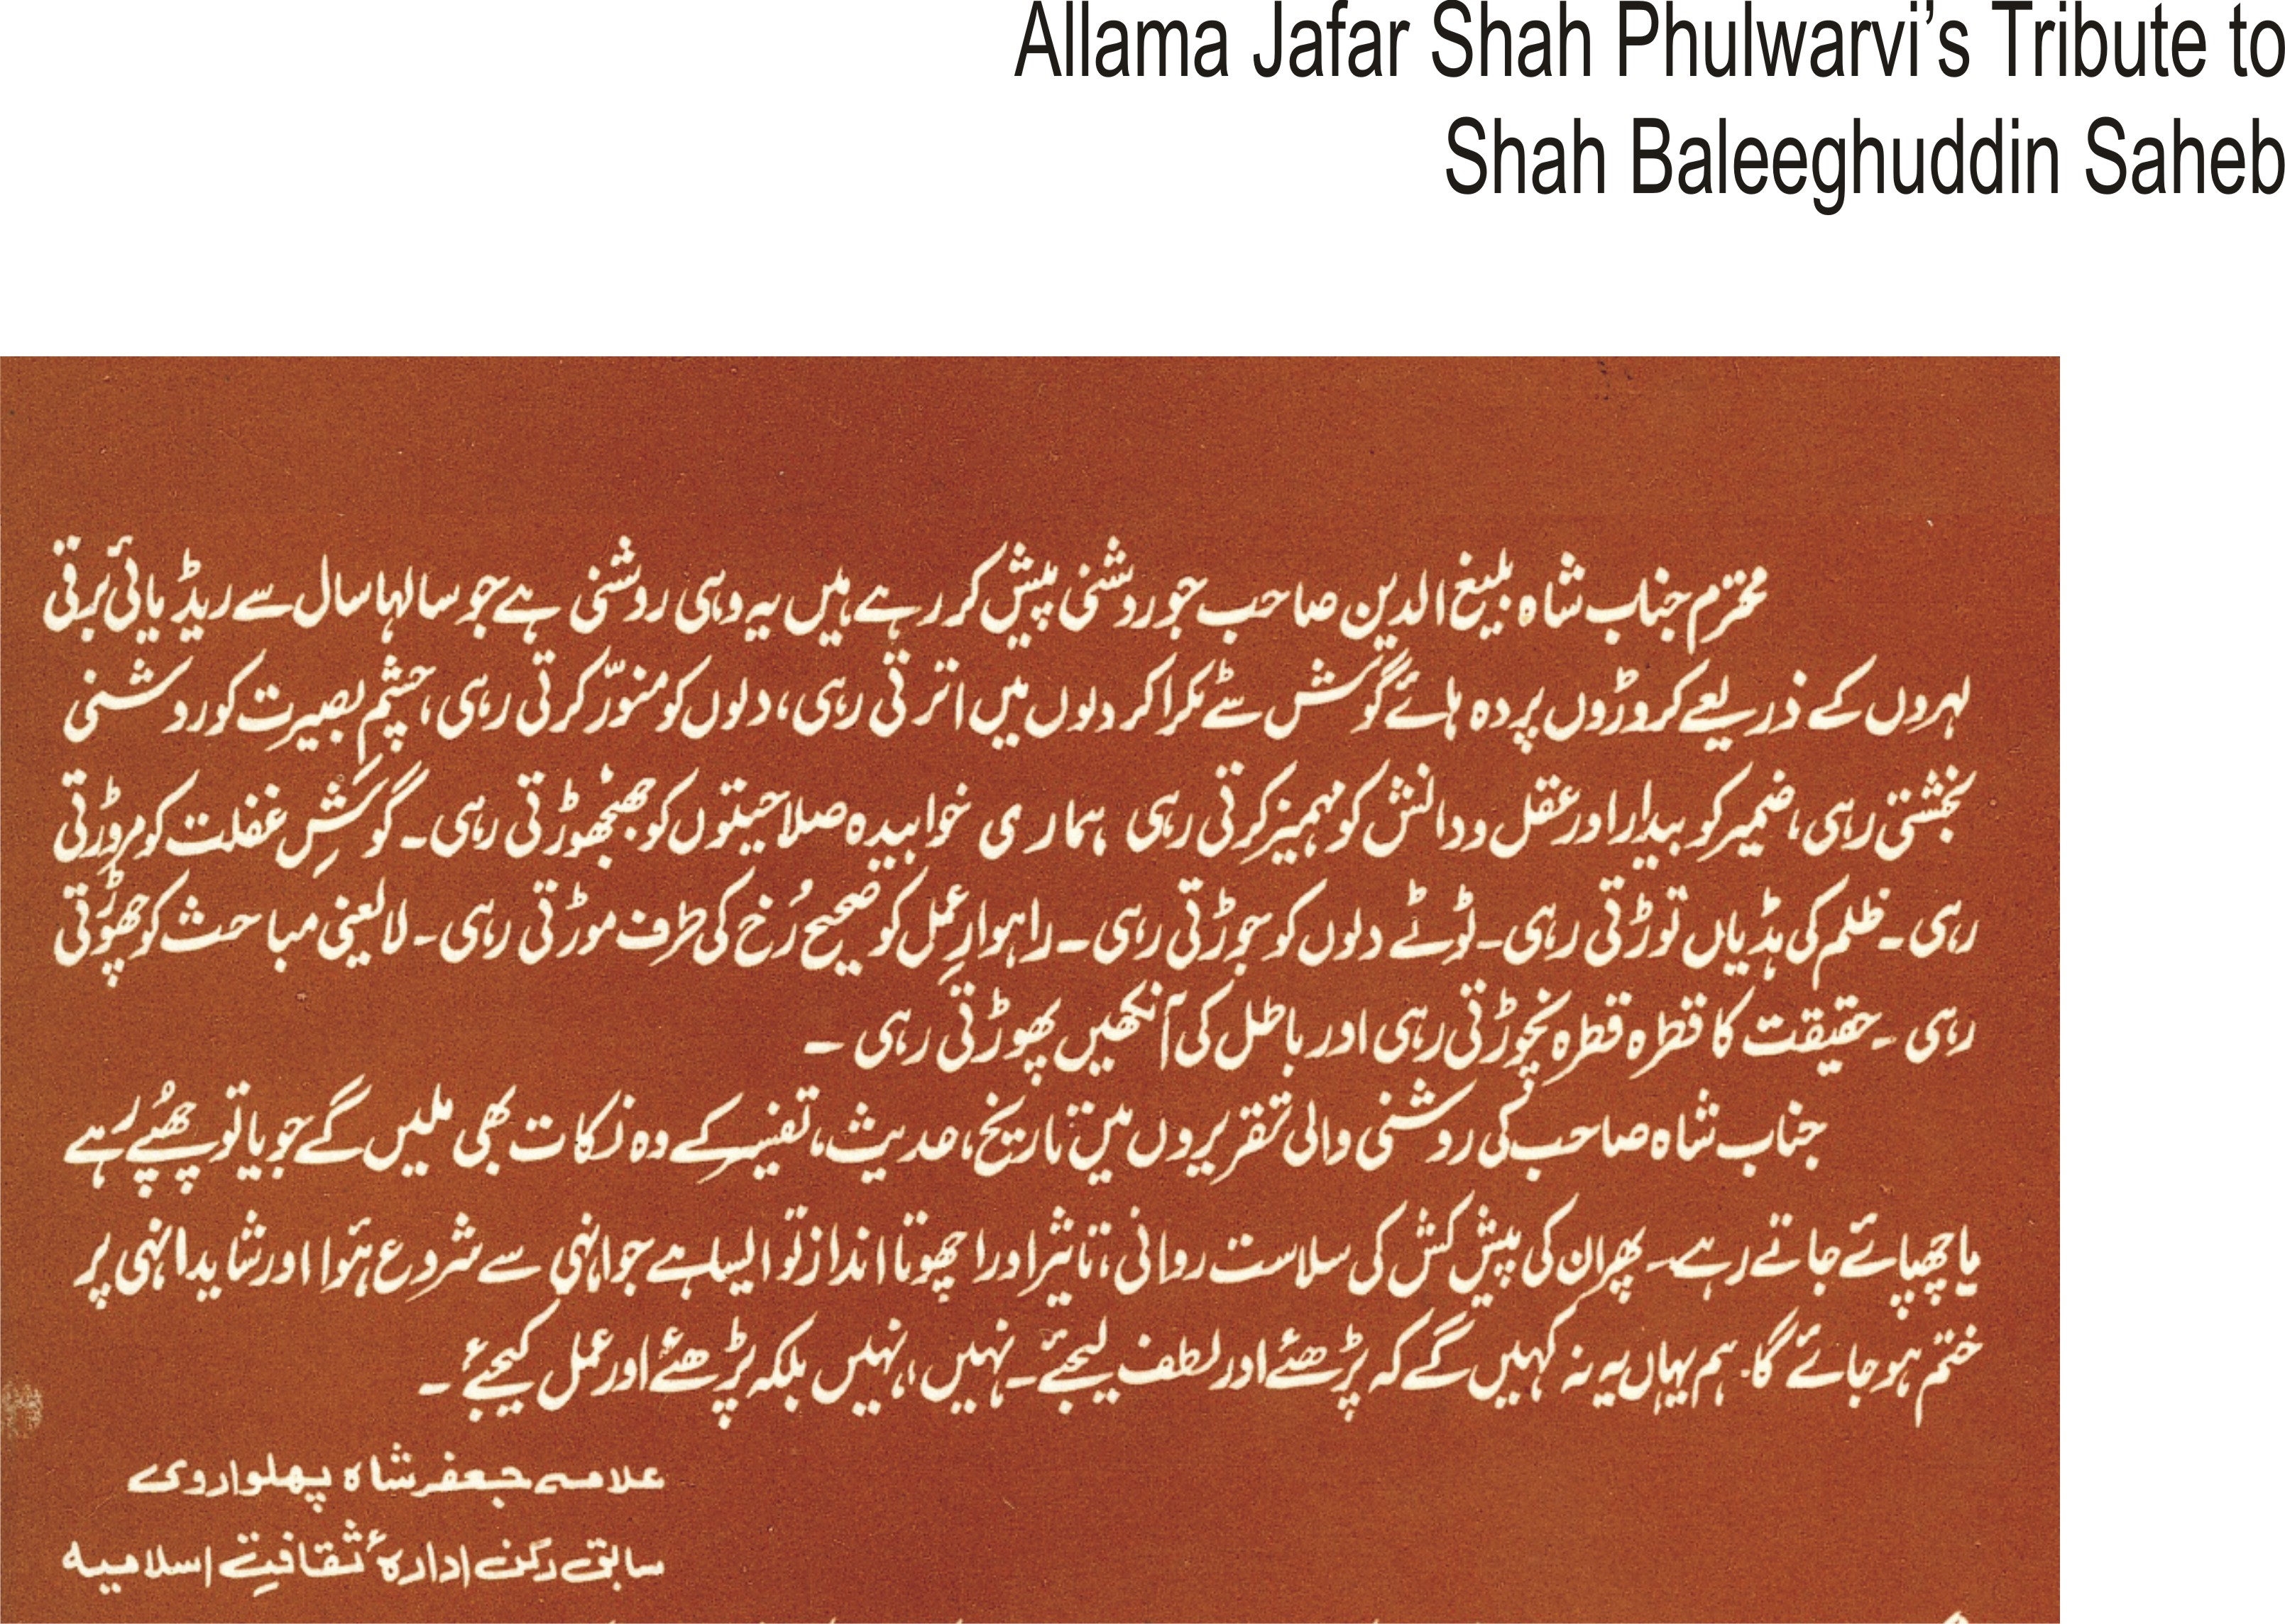 Allama Jafar Shah Phulwarvi’s Tribute to
Shah Baleeghuddin Saheb
محترم جناب شاہ بلیغ الدین صاحب جو روشنی پیش کر رہے ہیں یہ وہی روشنی ہے جو سالہا سال سے ریڈیائی برقی
لہروں کے ذریعے کروڑوں پردہ ہائے گوش سے ٹکرا کر دلوں میں اترتی رہی، دلوں کو منوّر کرتی رہی، چشمِ بصیرت کو روشنی
بخشتی رہی، ضمیر کو بیدار اور عقل و دانش کو مہمیز کرتی رہی ہماری خوابیدہ صلاحیتوں کو جھنجھوڑتی رہی۔ گوشِ غفلت کو مروڑتی
رہی۔ ظلم کی ہڈیاں توڑتی رہی۔ ٹوٹے دلوں کو جوڑتی رہی۔ راہوارِ عمل کو صحیح رُخ کی طرف موڑتی رہی۔ لایعنی مباحث کو چھوڑتی
رہی۔ حقیقت کا قطرہ قطرہ نچوڑتی رہی اور باطل کی آنکھیں پھوڑتی رہی۔
جناب شاہ صاحب کی روشنی والی تقریروں میں تاریخ، حدیث، تفسیر کے وہ نکات بھی ملیں گے جو یا تو چھُپے رہے
یا چھپائے جاتے رہے۔ پھر ان کی پیش کش کی سلاست روانی، تاثیر اور اچھوتا انداز تو ایسا ہے جو انہی سے شروع ہئوا اور شاید انہی پر
ختم ہو جائے گا۔ ہم یہاں یہ نہ کہیں گے کہ پڑھئے اور لطف لیجئے۔ نہیں، نہیں بلکہ پڑھئے اور عمل کیجئے۔
علامہ جعفر شاہ پھلواروی
سابق رکن ادارۂ ثقافتِ اسلامیہ